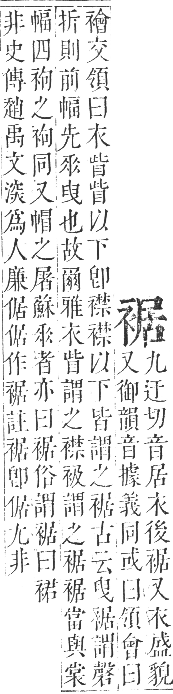 裾
九迂切音居衣後裾又衣盛貌
又御韻音據義同或曰領會曰
襘交領曰衣眥眥以下卽襟襟以下皆謂之裾古云曳裾謂磬
折則前幅先垂曳也故爾雅衣眥謂之襟袚謂之裾裾當與裳
幅四裪之裪同又帽之屠蘇垂者亦曰裾俗謂裾曰裙
非史傳趙禹文深爲人廉倨倨作裾註裾卽倨尤非